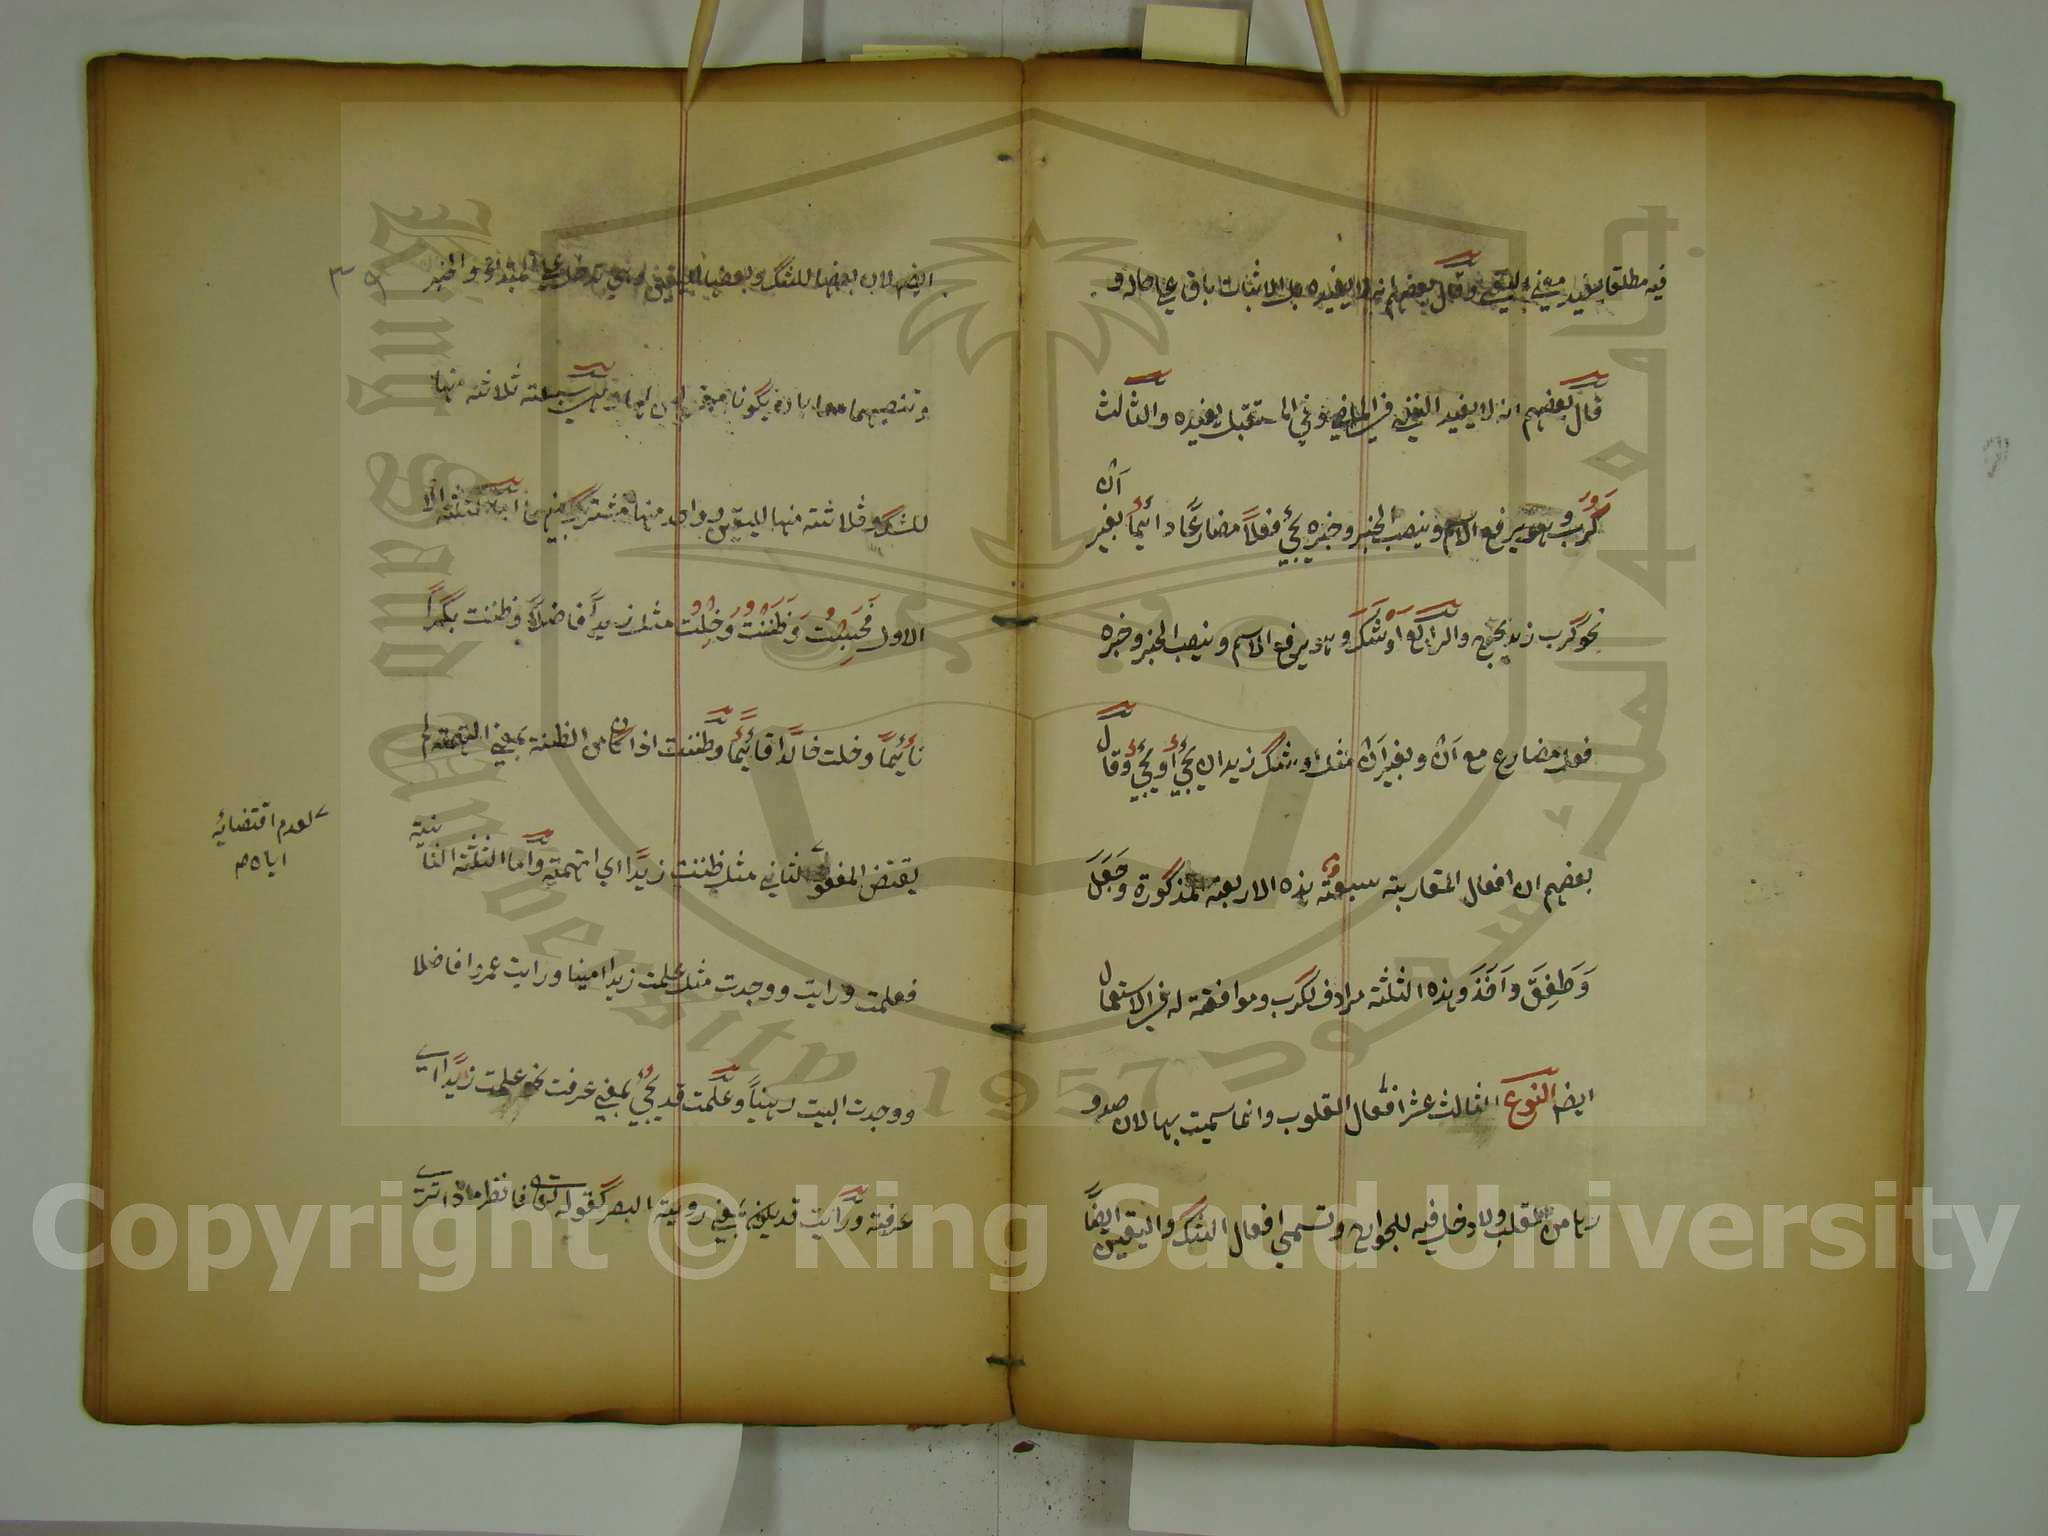 فيه مطلقا يفيد معنى النفي وقال بعضهم انه لا يفيده بل الاثبات باق على حاله و
قال بعضهم انه لا يفيد النفي في الماضي وفي المستقبل يفيده والثالث
كَرُبَ وهو يرفع الاسم وينصب الخبر وخبره يجئ فعلاً مضارعًا دائماً بغير اَنْ
نحو كرب زيد يخرج والرابع اَوْشَكَ وهو يرفع الاسم وينصب الخبر وخبره
فعل مضارع مع اَن وبغير اَن مثل اوشك زيد ان يجئ أو يجئ وقال
بعضهم ان افعال المقاربة سبعة هذه الاربعة المذكورة وجَعَلَ
وَطَفِقَ وَاَخَذَ وهذه الثلثة مرادف لكرب وموافقة له في الاستعمال
ايضا النوع الثالث عشر افعال القلوب وانما سميت بها لان صدو
رها من القلب ولا دخل فيه للجوارح وتسمى افعال الشك واليقين ايضًا
ايضا لان بعضها للشك وبعضها لليقين وهي تدخل على المبتداء والخبر
٣٩
وتنصبهما معا بان يكونا مفعولين لها وهي سبعة ثلاثة منها
للشك وثلاثة منها لليقين وواحد منها مشترك بينهما اما الثلثة
الاول فحَسِبْتُ وَظَنَنْتُ وَخِلْتُ مثل زيداً فاضلاً وظننت بكراً
نائماً وخلت خالدًا قائماً وظننت اذا كان من الظنة بمعنى التهمة لم
يقتض المفعول الثاني مثل ظننت زيدًا اي اتهمته واما الثلثة الثانية
لعدم اقتضائه
اياه ١٢
فعلمت ورايت ووجدت مثل علمت زيدا امينا ورايت عمروا فاضلا
ووجدت البيت رهيناً وعلمت قد يجئ بمعنى عرفت نحو علمت زيدًا اي
عرفته ورايت قد يكون بمعنى روية البصر كقوله تعالى فانظر ماذا ترى
King Saud University
جامعة الملك سعود
1957
Copyright © King Saud University